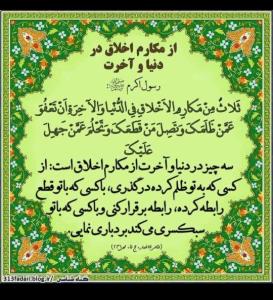 از مکارم اخلاق در
دنیا و آخرت
رسول اکرم ﷺ
ثَلاثٌ مِنْ مَكارِمِ الأَخْلاقِ فِي الدُّنْيا وَالآخِرَةِ أَنْ تَعْفُوَ
عَمَّنْ ظَلَمَكَ وَتَصِلَ مَنْ قَطَعَكَ وَتَحْلُمَ عَمَّنْ جَهِلَ
عَلَيْكَ
سه چیز در دنیا و آخرت از مکارم اخلاق است: از
کسی که به تو ظلم کرده درگذری، با کسی که با تو قطع
رابطه کرده، رابطه برقرار کنی و با کسی که با تو
سبکسری می‌کند بردباری نمایی.
313fadari.blog.ir/